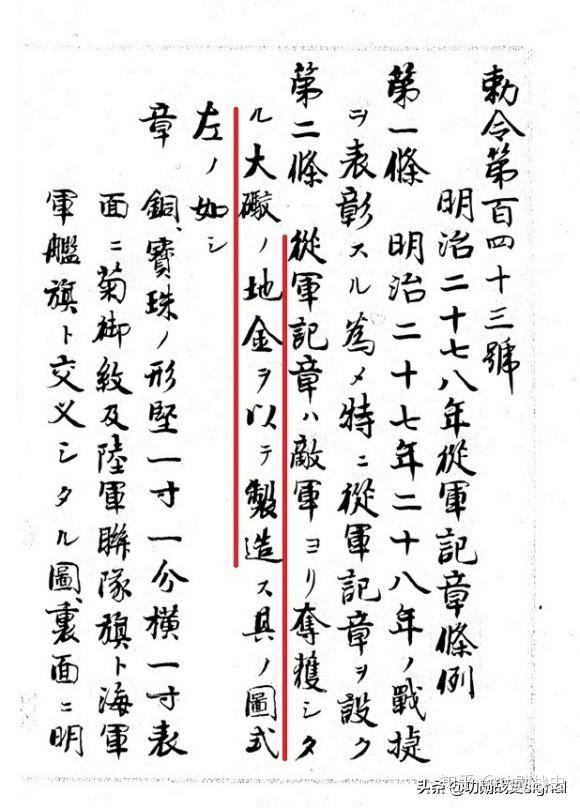 勅令第百四十三號
明治二十七八年從軍記章條例
第一條　明治二十七年二十八年ノ戰捷
ヲ表彰スル為メ特ニ從軍記章ヲ設ク
第二條　從軍記章ハ敵軍ヨリ奪獲シタ
ル大礮ノ地金ヲ以テ製造ス其ノ圖式
左ノ如シ
章　銅、寶珠ノ形竪一寸一分横一寸表
面ニ菊御紋及陸軍聯隊旗ト海軍
軍艦旗ト交叉シタル圖、裏面ニ明
头条 @功勋战史signal